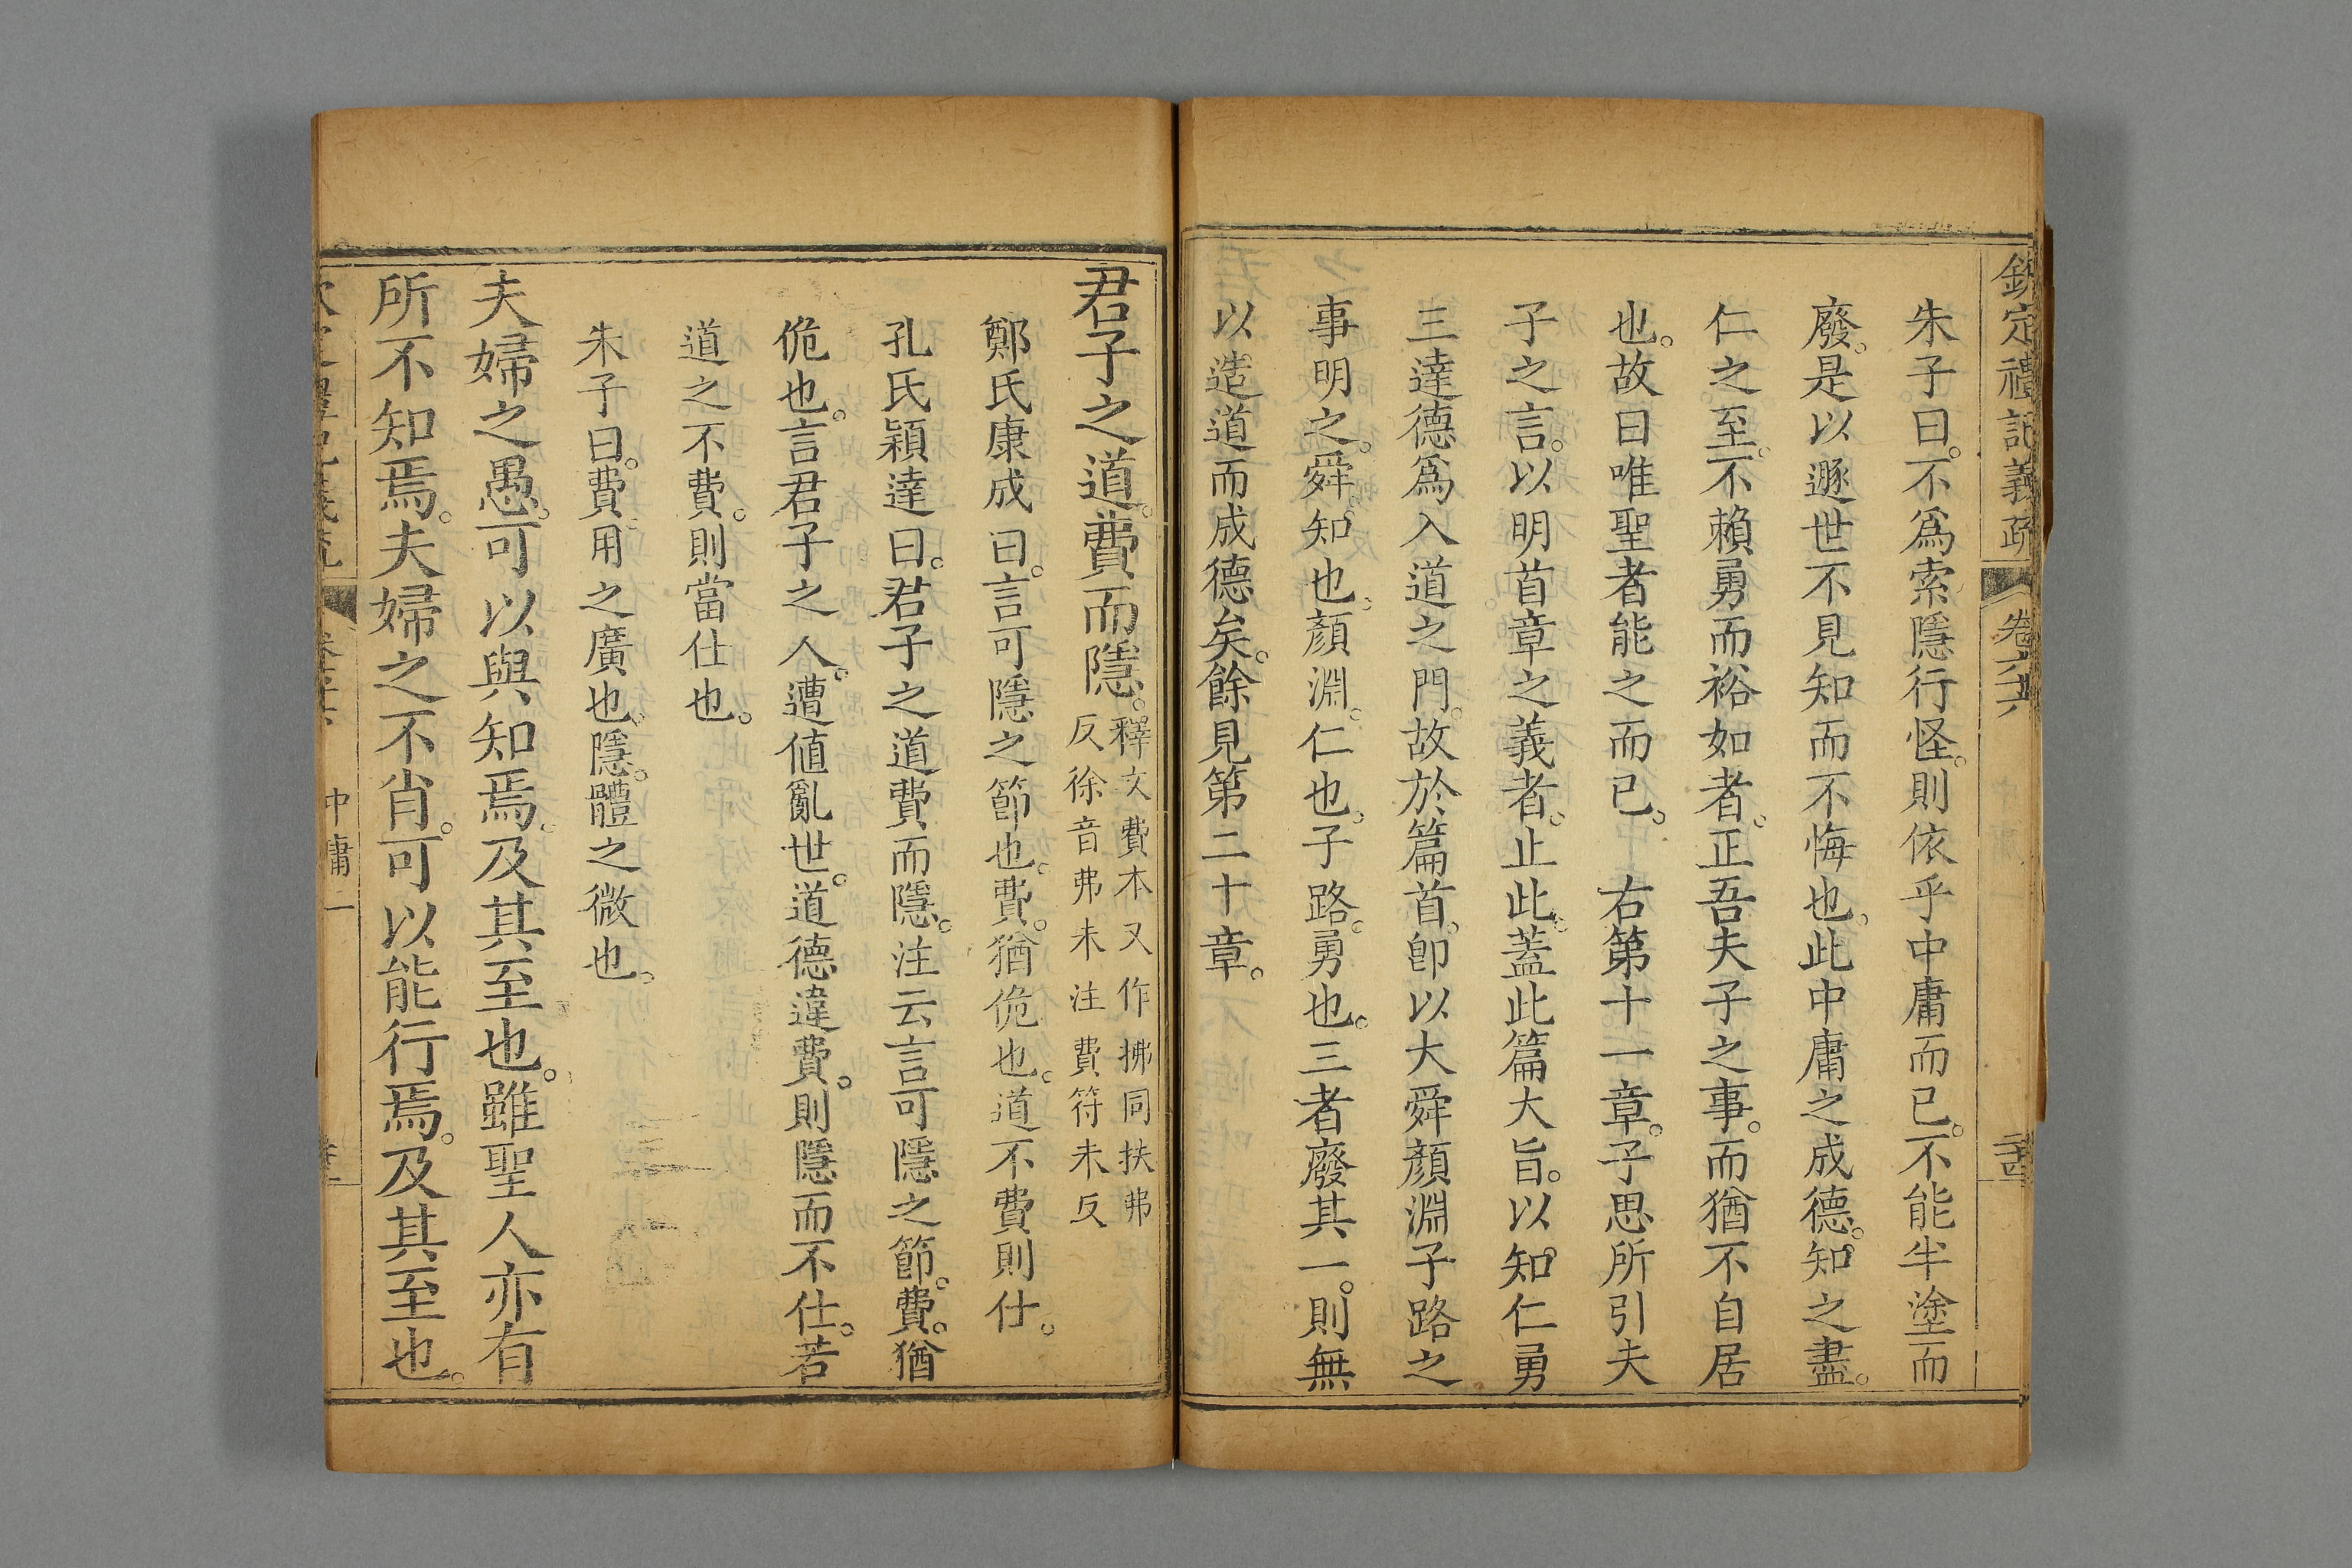 欽定禮記義疏 卷六十六
朱子曰。不爲索隱行怪。則依乎中庸而已。不能半塗而
廢。是以遯世不見知而不悔也。此中庸之成德。知之盡。
仁之至。不賴勇而裕如者。正吾夫子之事。而猶不自居
也。故曰唯聖者能之而已。 右第十一章。子思所引夫
子之言。以明首章之義者。止此。蓋此篇大旨。以知仁勇
三達德爲入道之門。故於篇首。卽以大舜顏淵子路之
事明之。舜。知也。顏淵。仁也。子路。勇也。三者廢其一。則無
以造道而成德矣。餘見第二十章。
君子之道。費而隱。釋文費本又作拂同扶弗
反徐音弗未注費符未反
鄭氏康成曰。言可隱之節也。費。猶佹也。道不費則仕。
孔氏穎達曰。君子之道費而隱。注云言可隱之節。費。猶
佹也。言君子之人。遭値亂世。道德違費。則隱而不仕。若
道之不費。則當仕也。
朱子曰。費。用之廣也。隱。體之微也。
夫婦之愚。可以與知焉。及其至也。雖聖人亦有
所不知焉。夫婦之不肖。可以能行焉。及其至也。
中庸二